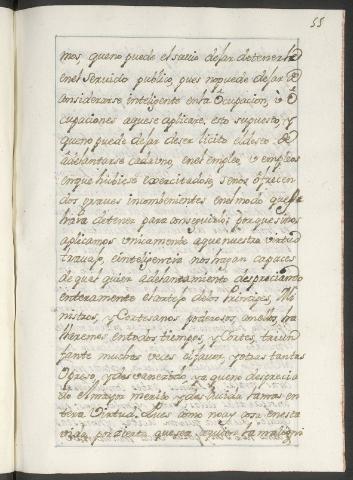 55
mos, que no puede el savio dejar de tenerla
en el servicio publico, pues no puede dejar de
considerarse inteligente en la Ocupacion, ù O
cupaciones a que se aplicare, esto supuesto, y
que no puede dejar de ser licito el deseo de
adelantarse cada uno, en el empleo, ù empleos
en que hubiese exercitadose, se nos ofrecen
dos graves incombenientes en el modo que se
hará de tener para conseguirlo; porque si nos
aplicamos unicamente a que nuestra virtud
travajo, è inteligencia nos hagan capaces
de qualquier adelantamiento despreciando
enteramente el cortejo de los Principes, Mi
nistros, y Cortesanos poderosos, con ellos, ha
llaremos en todos tiempos, y Cortes, triun
fante muchas veces el favor, y otras tantas
opreso, y desvanecido, ya que no desprecia
do el mayor merito, y deslucida la mas en
tera Virtud. Pues como no ay cosa en esta
vida, por recta que sea, que no la malicie